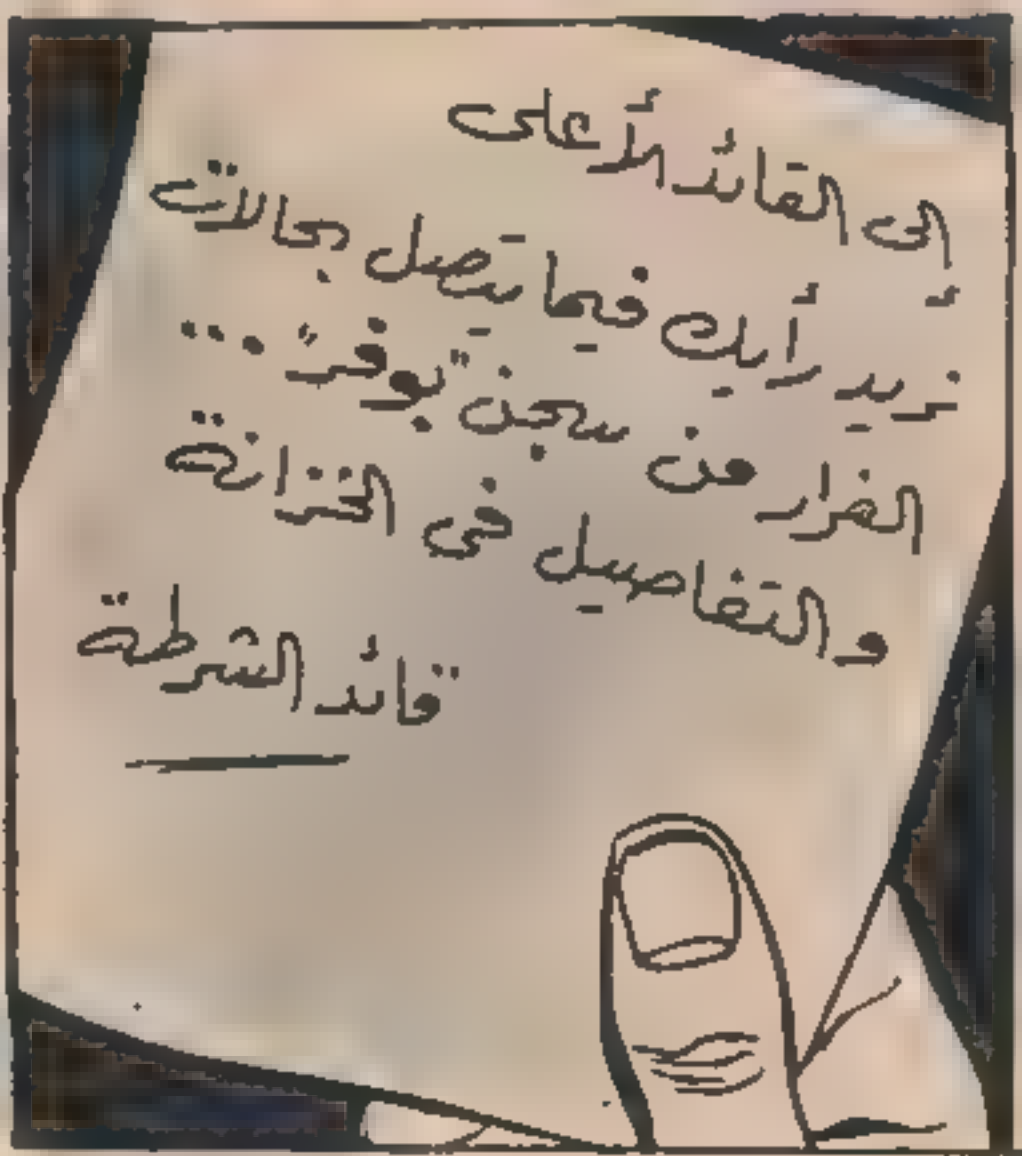 إلى القائد الأعلى
نريد رأيك فيما يتصل بحالات
الفرار من سجن "بوفر" ...
والتفاصيل فى الخزانة
قائد الشرطة